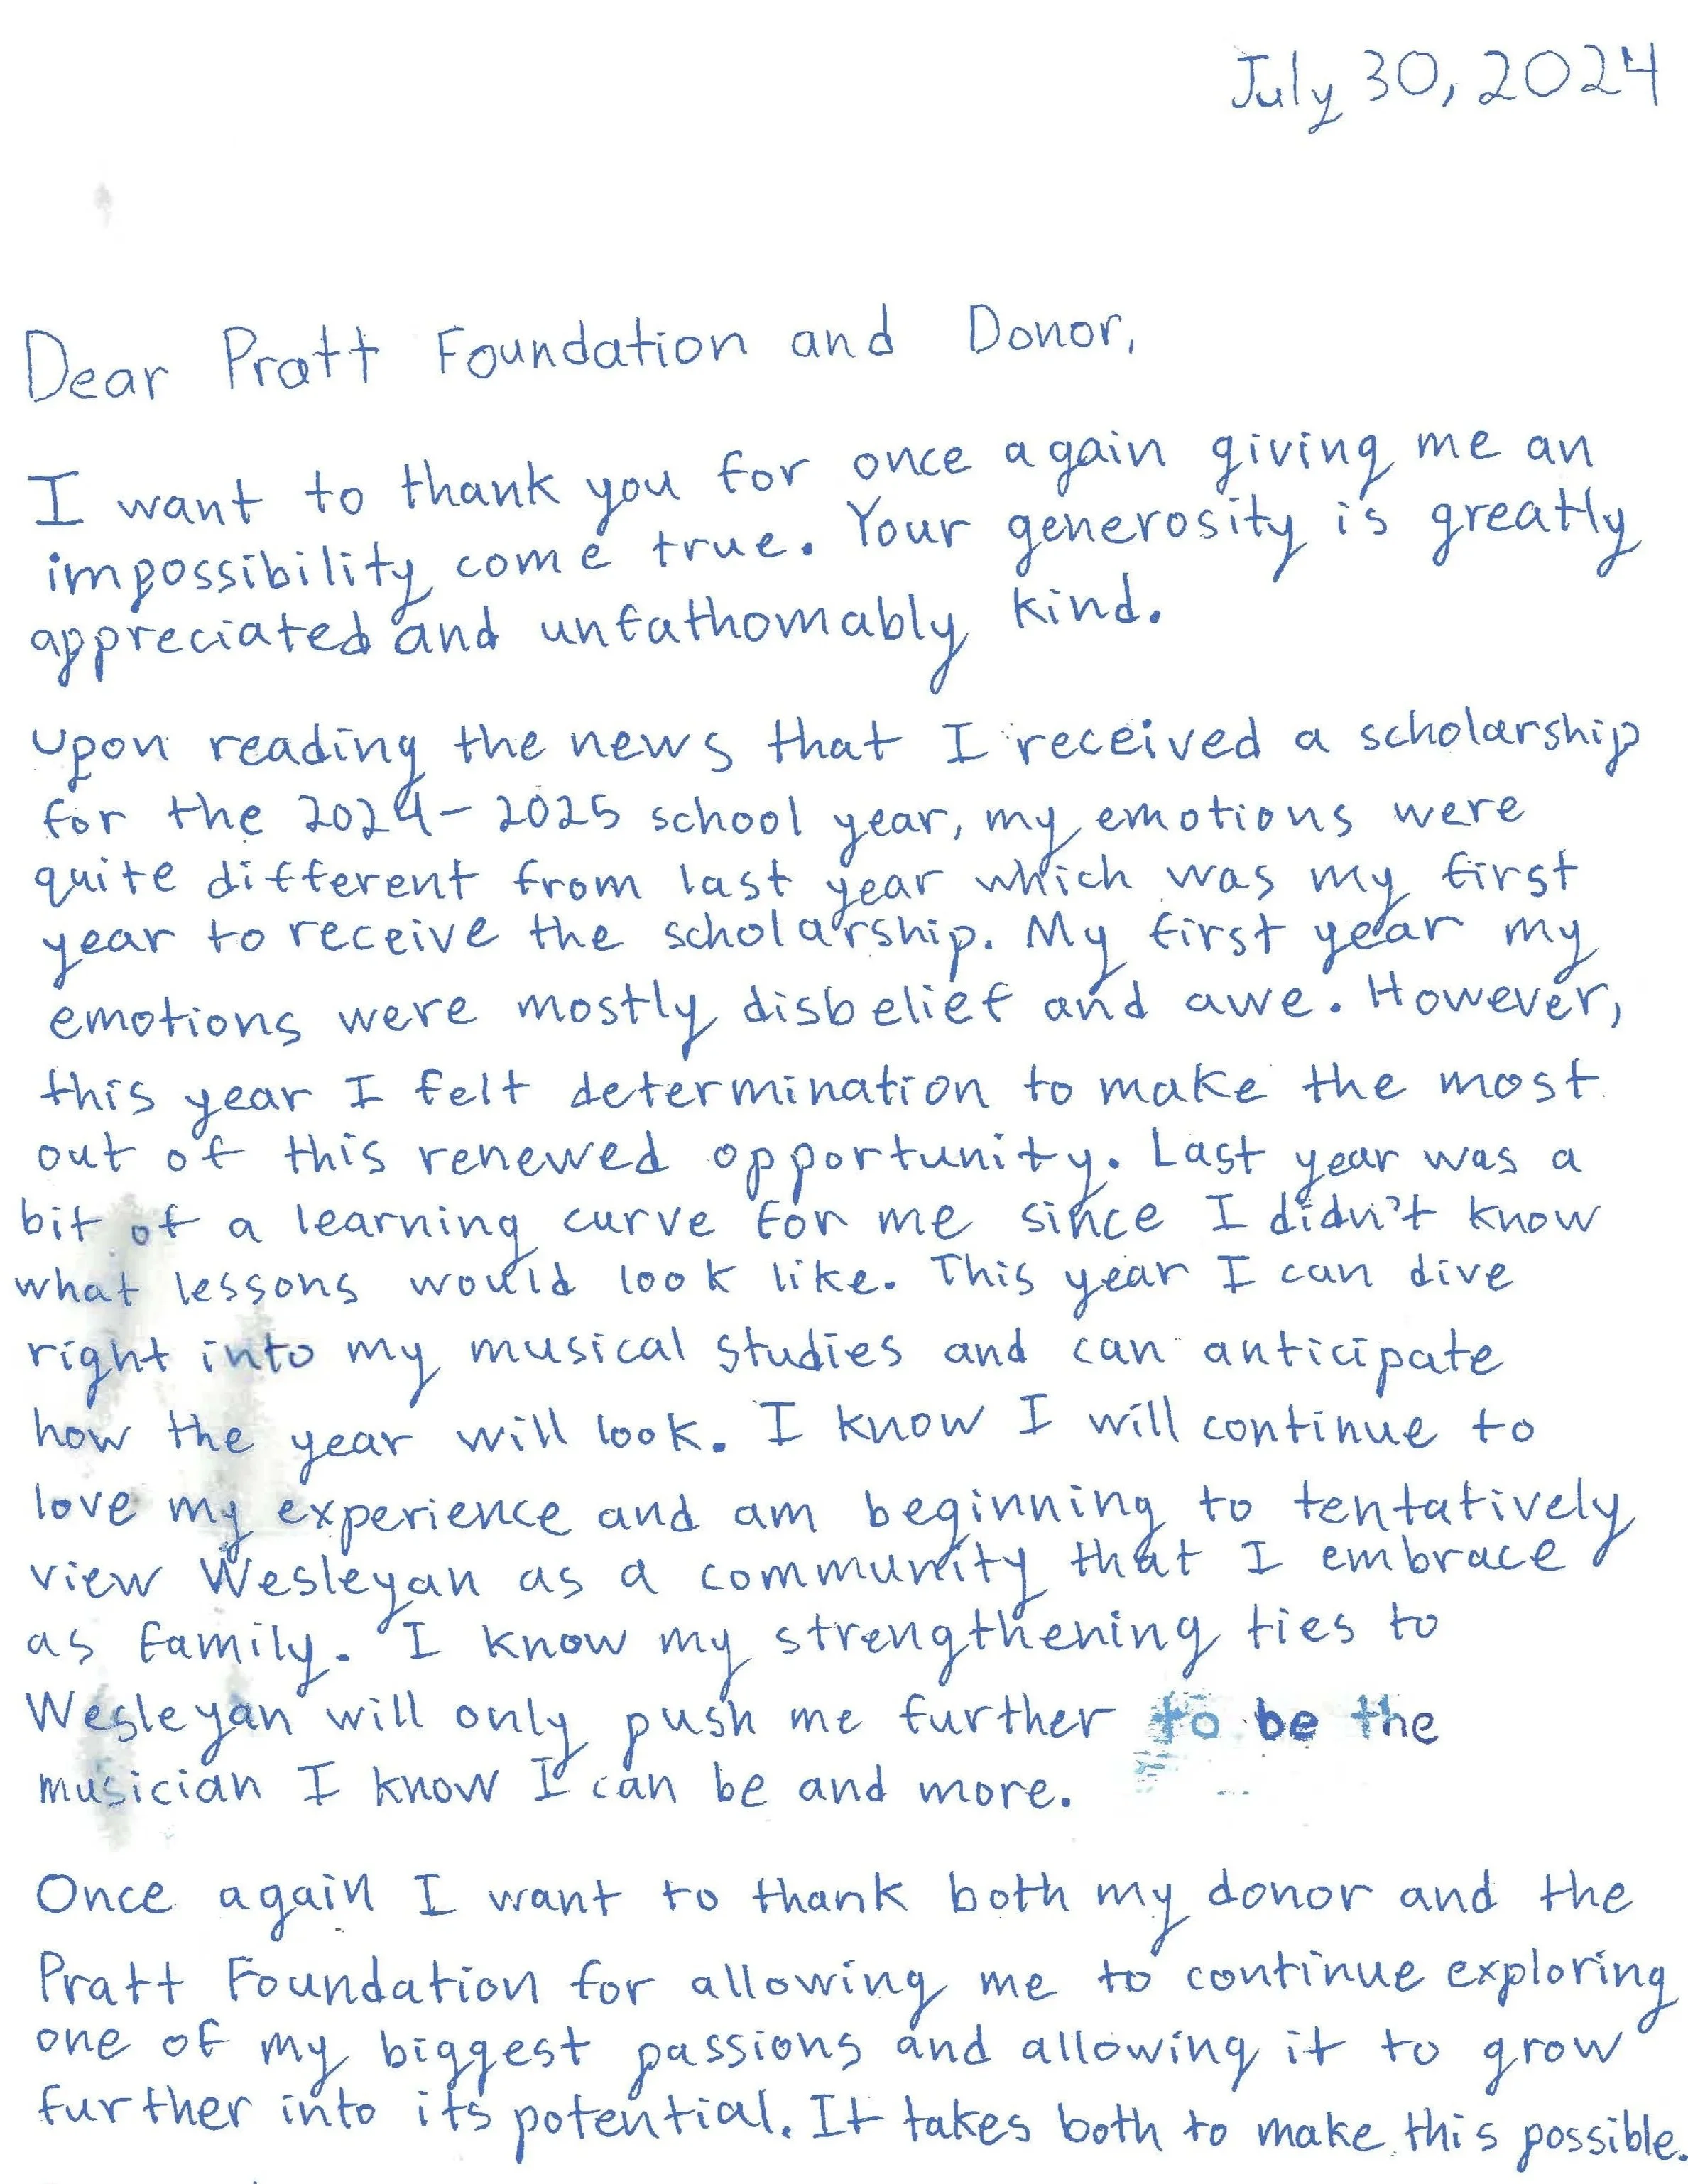 July 30, 2024
Dear Pratt Foundation and Donor,
I want to thank you for once again giving me an
impossibility come true. Your generosity is greatly
appreciated and unfathomably kind.
Upon reading the news that I received a scholarship
for the 2024-2025 school year, my emotions were
quite different from last year which was my first
year to receive the scholarship. My first year my
emotions were mostly disbelief and awe. However,
this year I felt determination to make the most
out of this renewed opportunity. Last year was a
bit of a learning curve for me since I didn't know
what lessons would look like. This year I can dive
right into my musical studies and can anticipate
how the year will look. I know I will continue to
love my experience and am beginning to tentatively
view Wesleyan as a community that I embrace
as family. I know my strengthening ties to
Wesleyan will only push me further to be the
musician I know I can be and more.
Once again I want to thank both my donor and the
Pratt Foundation for allowing me to continue exploring
one of my biggest passions and allowing it to grow
further into its potential. It takes both to make this possible.